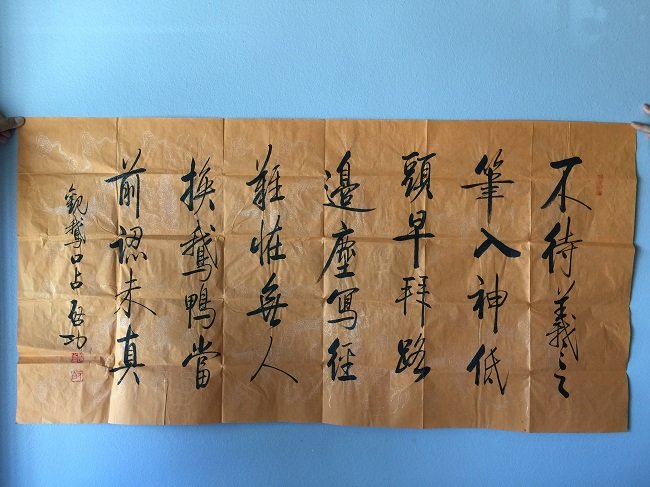 不待羲之
筆入神低
頭早拜路
邊塵寫經
難怪無人
換鵝鴨當
前認未真
觀鵝口占 启功